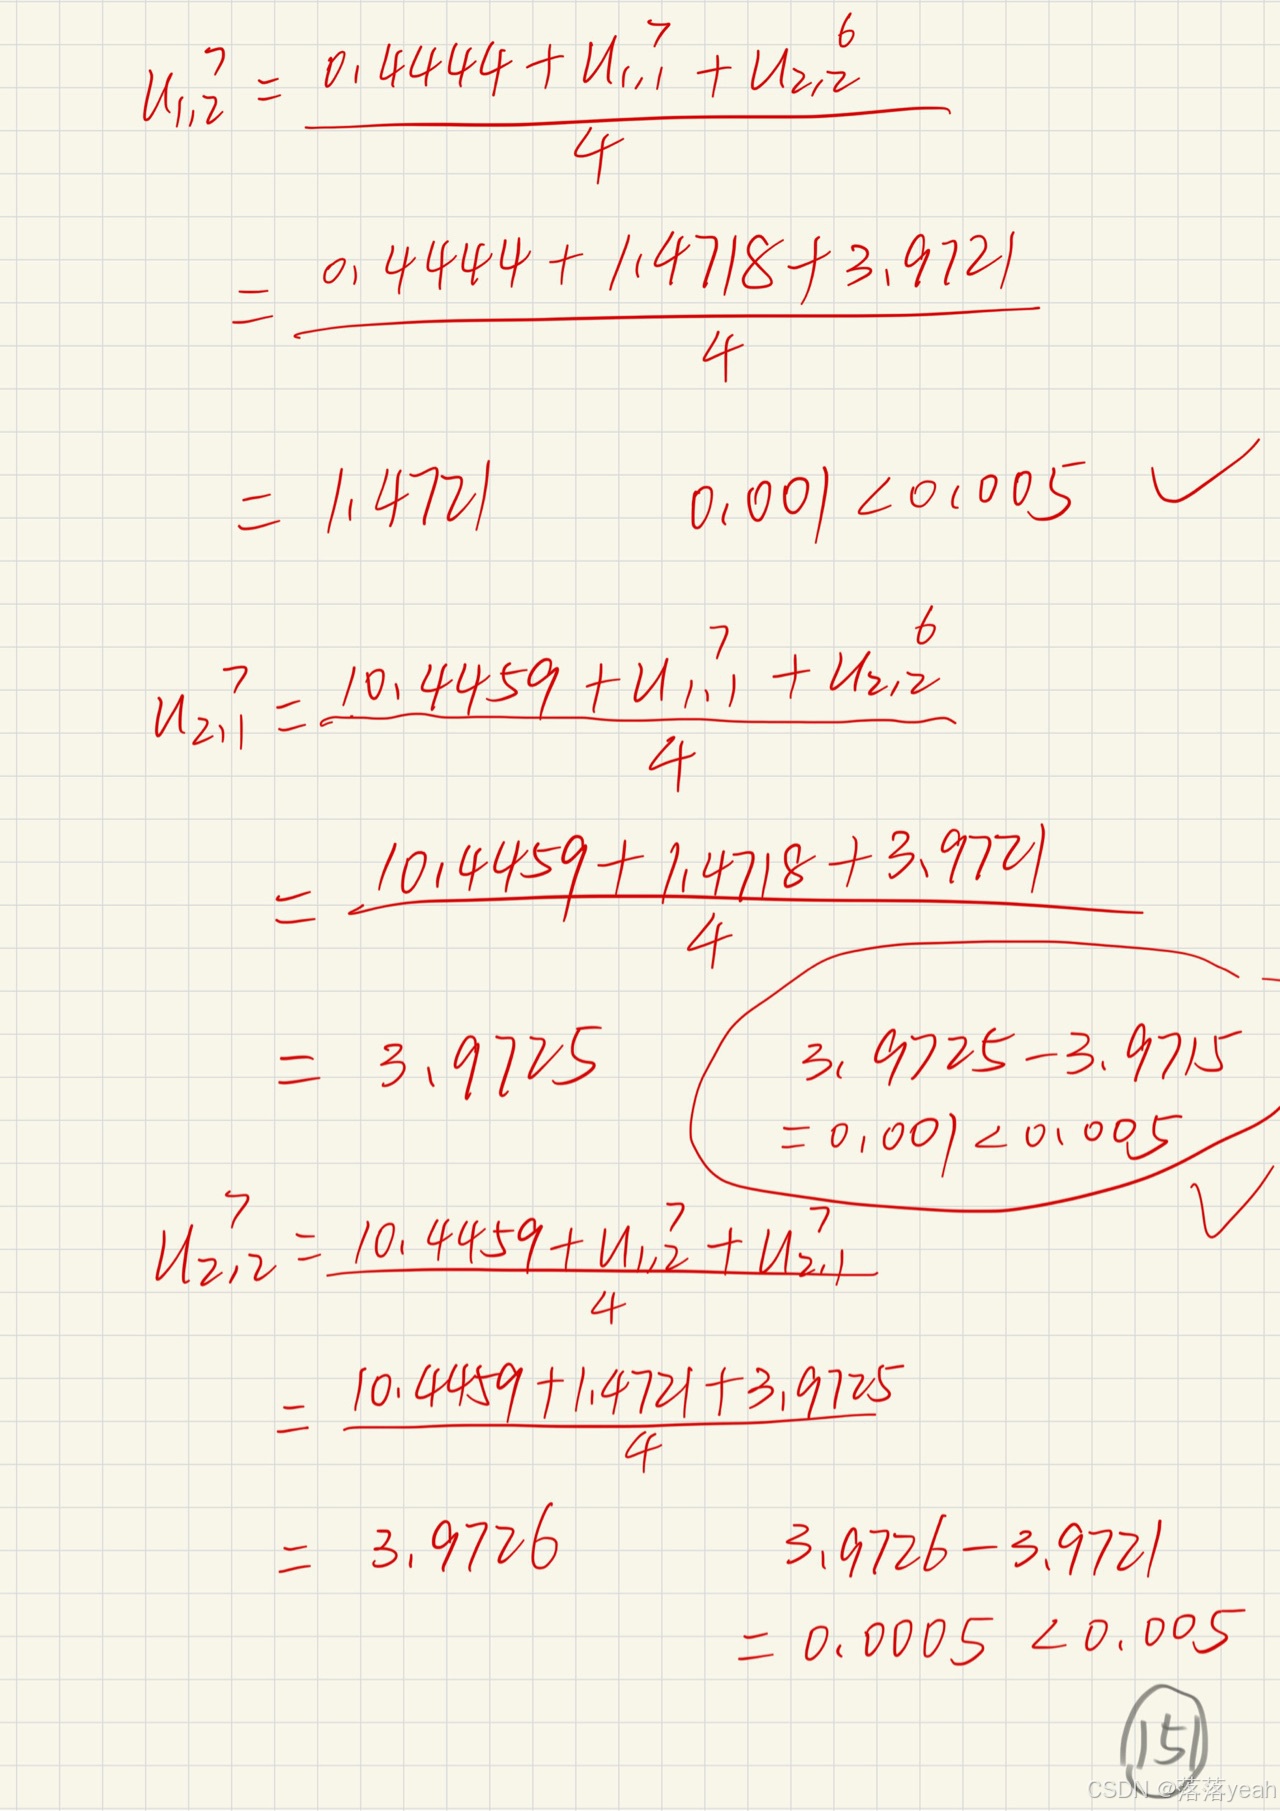 u₁,₂⁷ = (0.4444 + u₁,₁⁷ + u₂,₂⁶) / 4
= (0.4444 + 1.4718 + 3.9721) / 4
= 1.4721 0.001 < 0.005 ✓
u₂,₁⁷ = (10.4459 + u₁,₁⁷ + u₂,₂⁶) / 4
= (10.4459 + 1.4718 + 3.9721) / 4
= 3.9725 3.9725 - 3.9715
= 0.001 < 0.005 ✓
u₂,₂⁷ = (10.4459 + u₁,₂⁷ + u₂,₁⁷) / 4
= (10.4459 + 1.4721 + 3.9725) / 4
= 3.9726 3.9726 - 3.9721
= 0.0005 < 0.005
151
CSDN @落落yeah